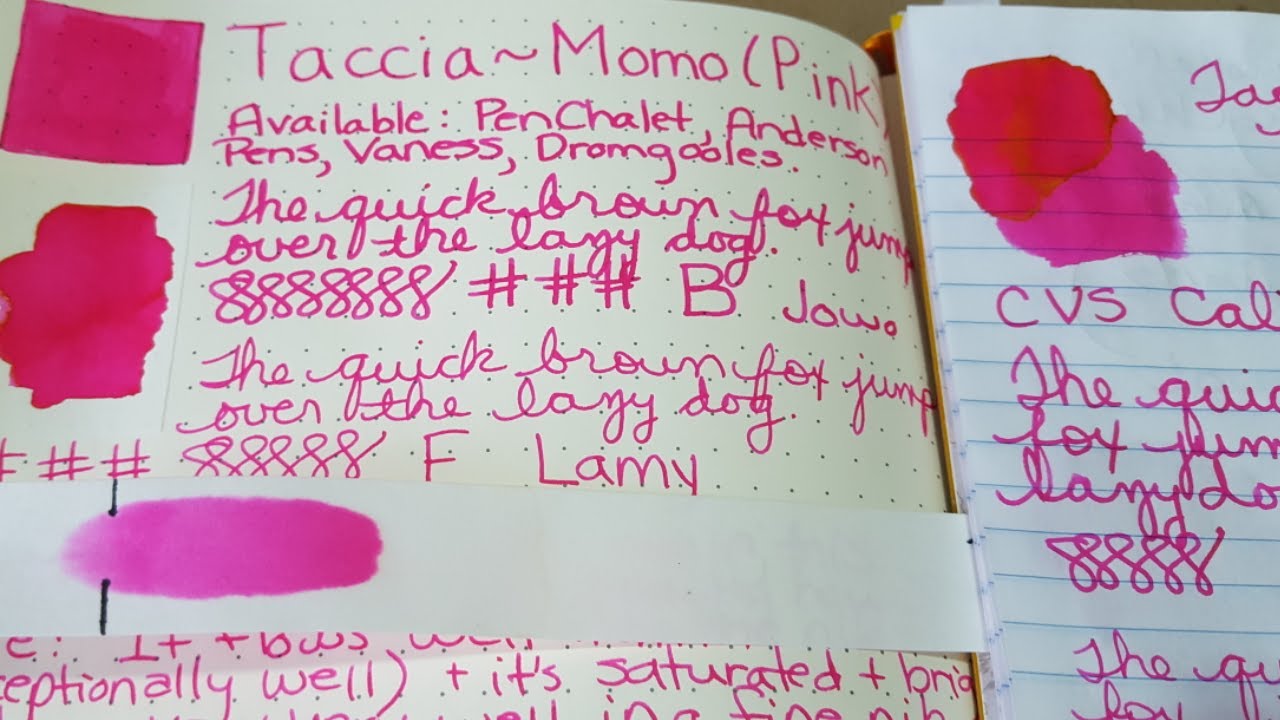 Taccia~Momo (Pink)
Available: PenChalet, Anderson
Pens, Vaness, Dromgooles.
The quick brown fox jump
over the lazy dog.
88888888 # # # B Jowo
The quick brown fox jump
over the lazy dog.
# # # 88888 F Lamy
It
ceptionally well) + it's saturated +
well in a fine nib
CVS
The quic
fox jum
lazy do
8888
The qu
fox